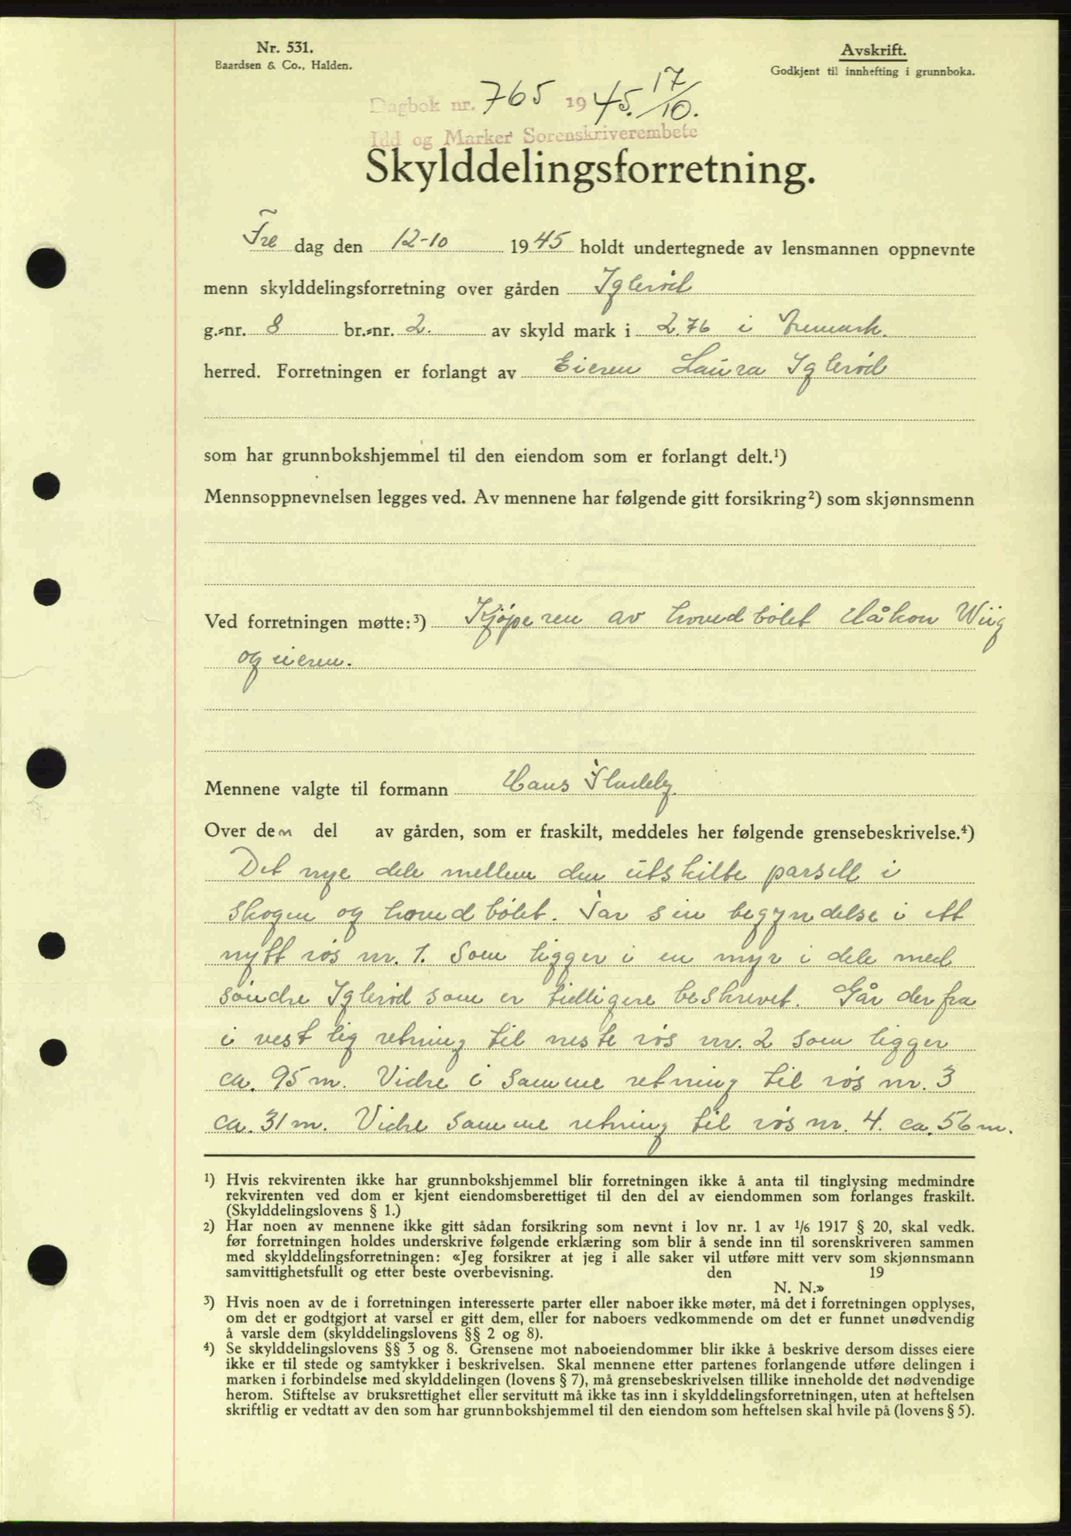 Nr. 531.
Baardsen & Co., Halden.
Avskrift.
Godkjent til innhefting i grunnboka.
Dagbok nr. 765 1945. 17/10.
Idd og Marker Sorenskriverembete
Skylddelingsforretning.
Fre dag den 12-10 1945 holdt undertegnede av lensmannen oppnevnte
menn skylddelingsforretning over gården Iglerød
g.-nr. 8 br.-nr. 2. av skyld mark i 2.76 i Øremark.
herred. Forretningen er forlangt av Eieren Laura Iglerød
som har grunnbokshjemmel til den eiendom som er forlangt delt.¹)
Mennsoppnevnelsen legges ved. Av mennene har følgende gitt forsikring²) som skjønnsmenn
Ved forretningen møtte:³) Kjøperen av hovedbølet Håkon Wiig
og eieren.
Mennene valgte til formann Hans
Over den del av gården, som er fraskilt, meddeles her følgende grensebeskrivelse.⁴)
Det nye dele mellem den utskilte parsell i
skogen og hovedbølet. Tar sin begyndelse i ett
nytt røs nr. 1. Som ligger i en myr i dele med
søndre Iglerød som er tidligere beskrevet. Går derfra
i vestlig retning til neste røs nr. 2 som ligger
ca. 95 m. Vidre i samme retning til røs nr. 3
ca. 31 m. Vidre samme retning til røs nr. 4. ca. 56 m.
¹) Hvis rekvirenten ikke har grunnbokshjemmel blir forretningen ikke å anta til tinglysing medmindre
rekvirenten ved dom er kjent eiendomsberettiget til den del av eiendommen som forlanges fraskilt.
(Skylddelingslovens § 1.)
²) Har noen av mennene ikke gitt sådan forsikring som nevnt i lov nr. 1 av 1/6 1917 § 20, skal vedk.
før forretningen holdes underskrive følgende erklæring som blir å sende inn til sorenskriveren sammen
med skylddelingsforretningen: «Jeg forsikrer at jeg i alle saker vil utføre mitt verv som skjønnsmann
samvittighetsfullt og etter beste overbevisning. den 19
N. N.»
³) Hvis noen av de i forretningen interesserte parter eller naboer ikke møter, må det i forretningen opplyses,
om det er godtgjort at varsel er gitt dem, eller for naboers vedkommende om det er funnet unødvendig
å varsle dem (skylddelingslovens §§ 2 og 8).
⁴) Se skylddelingslovens §§ 3 og 8. Grensene mot naboeiendommer blir ikke å beskrive dersom disses eiere
ikke er til stede og samtykker i beskrivelsen. Skal mennene etter partenes forlangende utføre delingen i
marken i forbindelse med skylddelingen (lovens § 7), må grensebeskrivelsen tillike inneholde det nødvendige
herom. Stiftelse av bruksrettighet eller servitutt må ikke tas inn i skylddelingsforretningen, uten at heftelsen
skriftlig er vedtatt av den som har grunnbokshjemmel til den eiendom som heftelsen skal hvile på (lovens § 5).